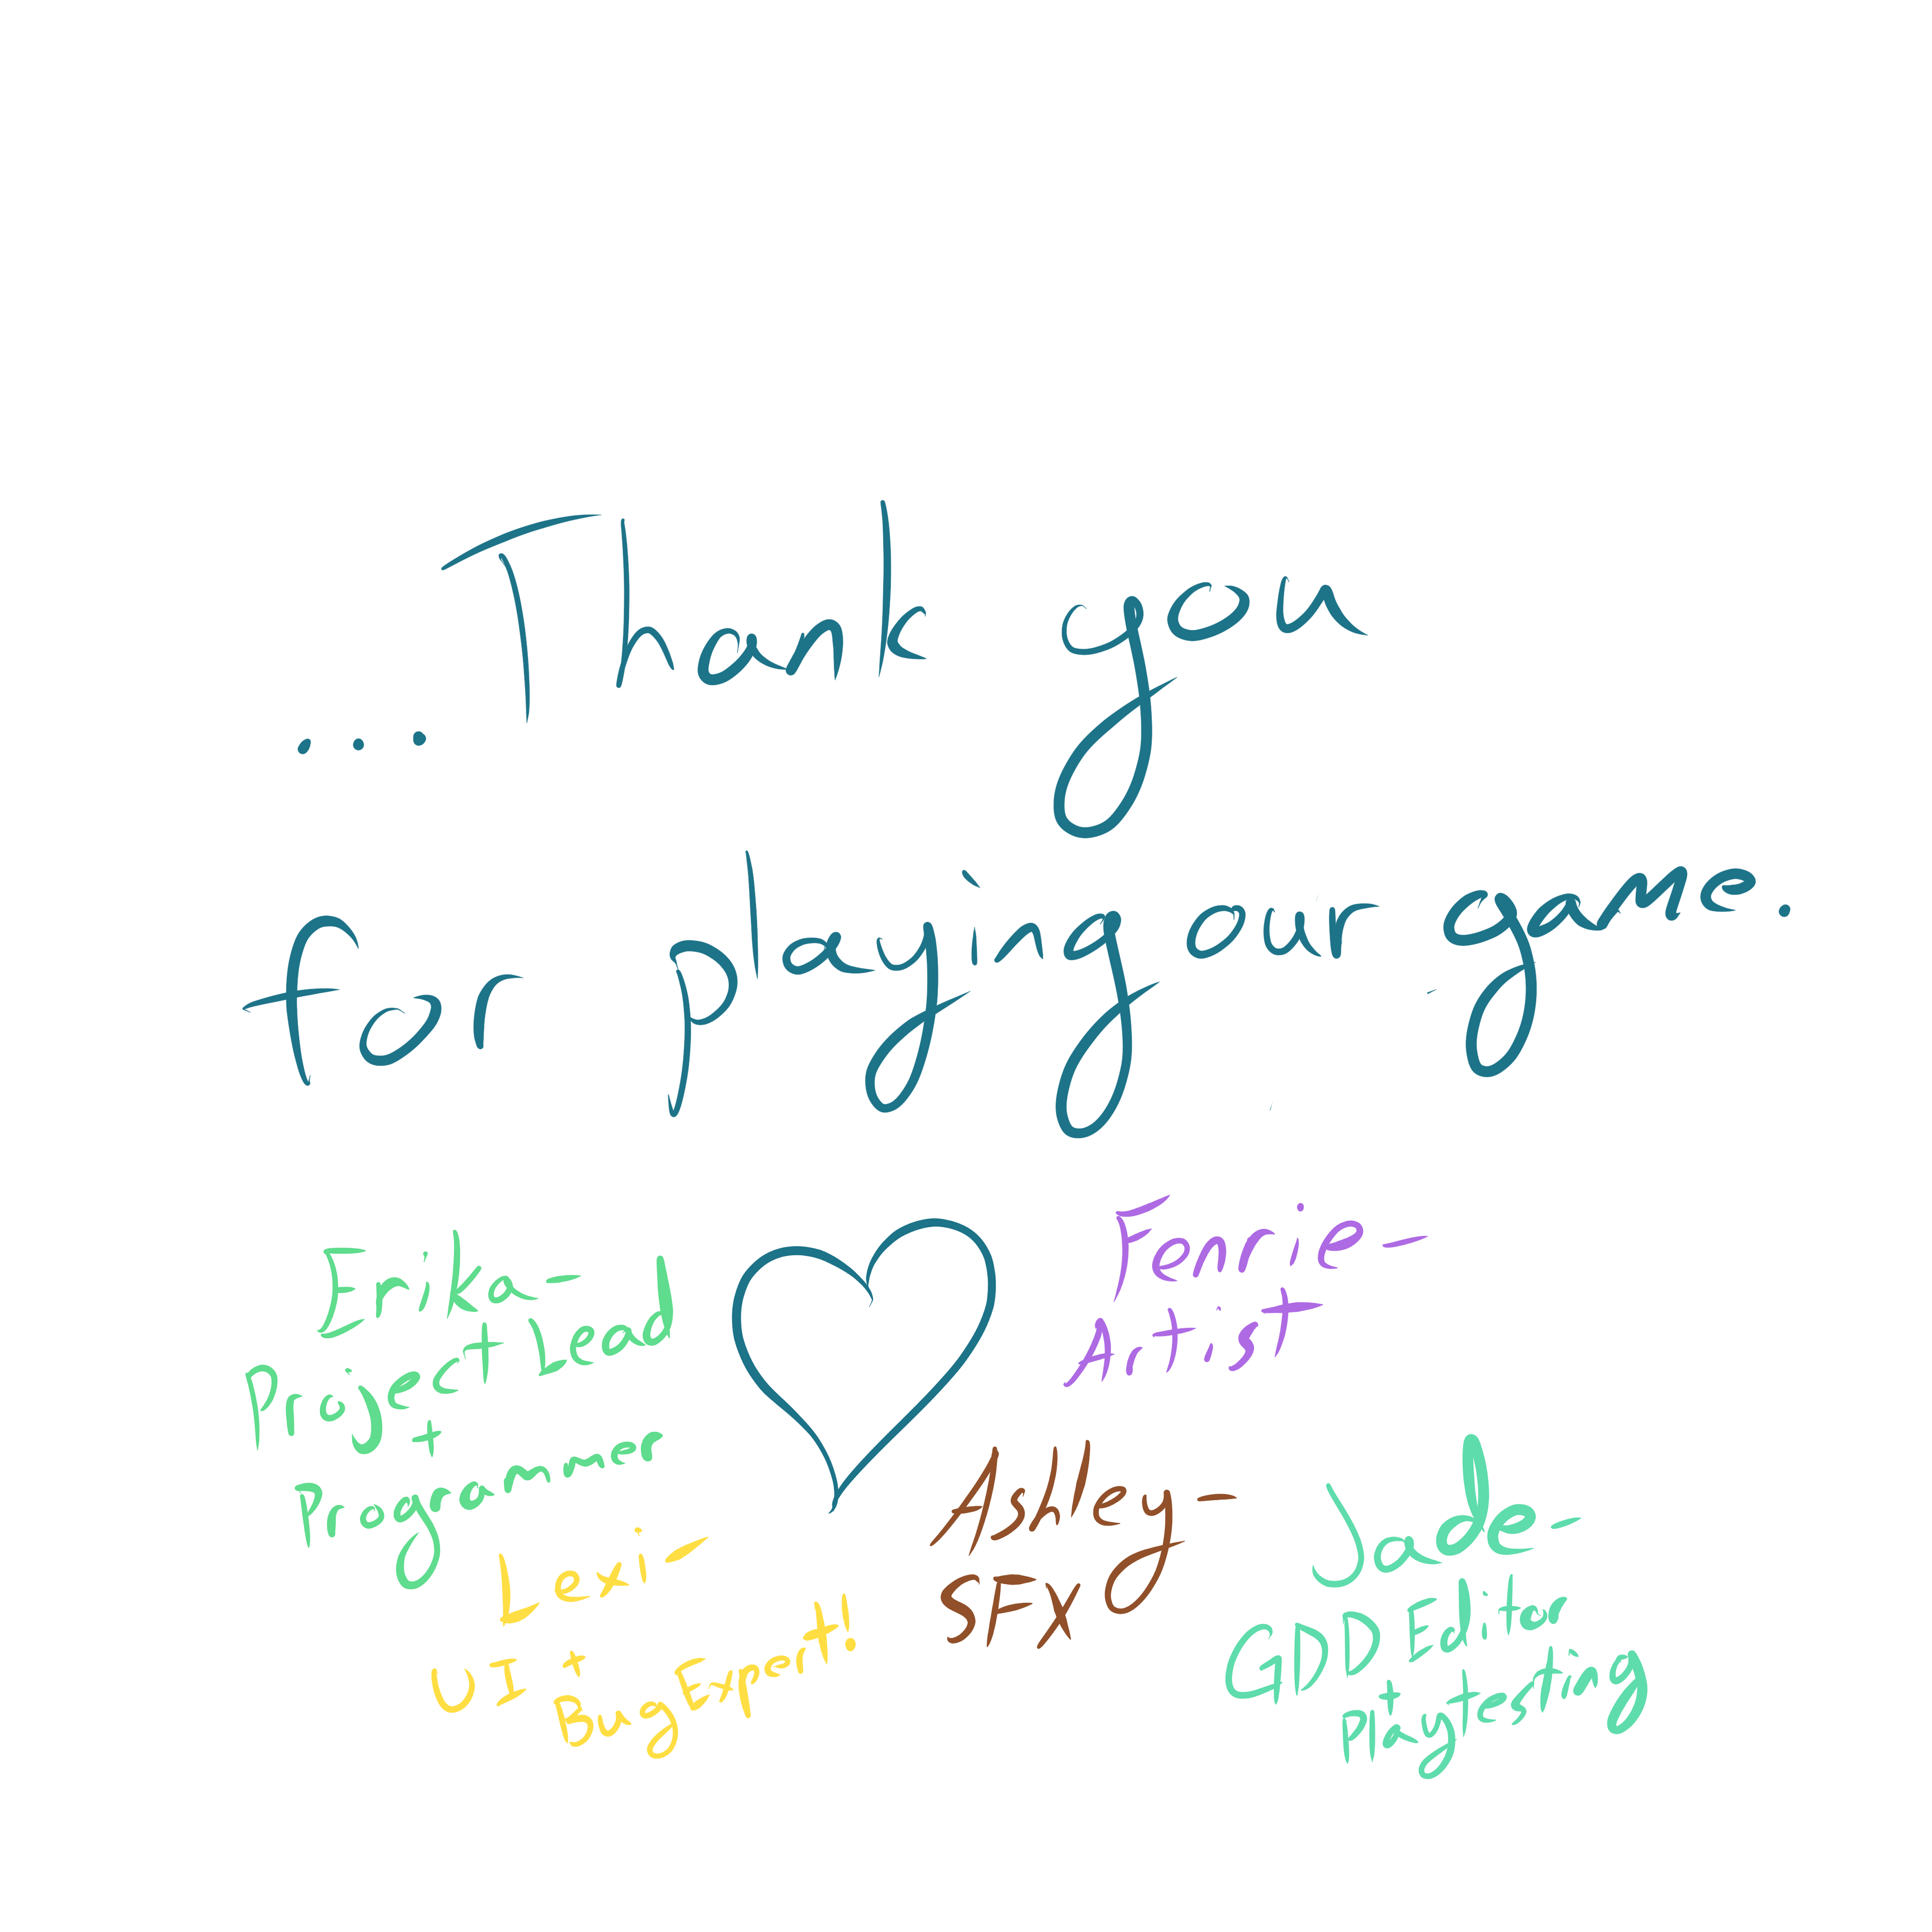 ... Thank you
for playing our game.
Erika-
Project lead
+
Programmer
Fenrie-
Artist
Lexi-
UI +
Bug Expert!!
Ashley-
SFX
Jade-
GDD Editor
+
Playtesting